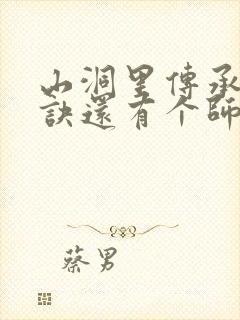 山洞里傳承
訣還有个師
蔡男